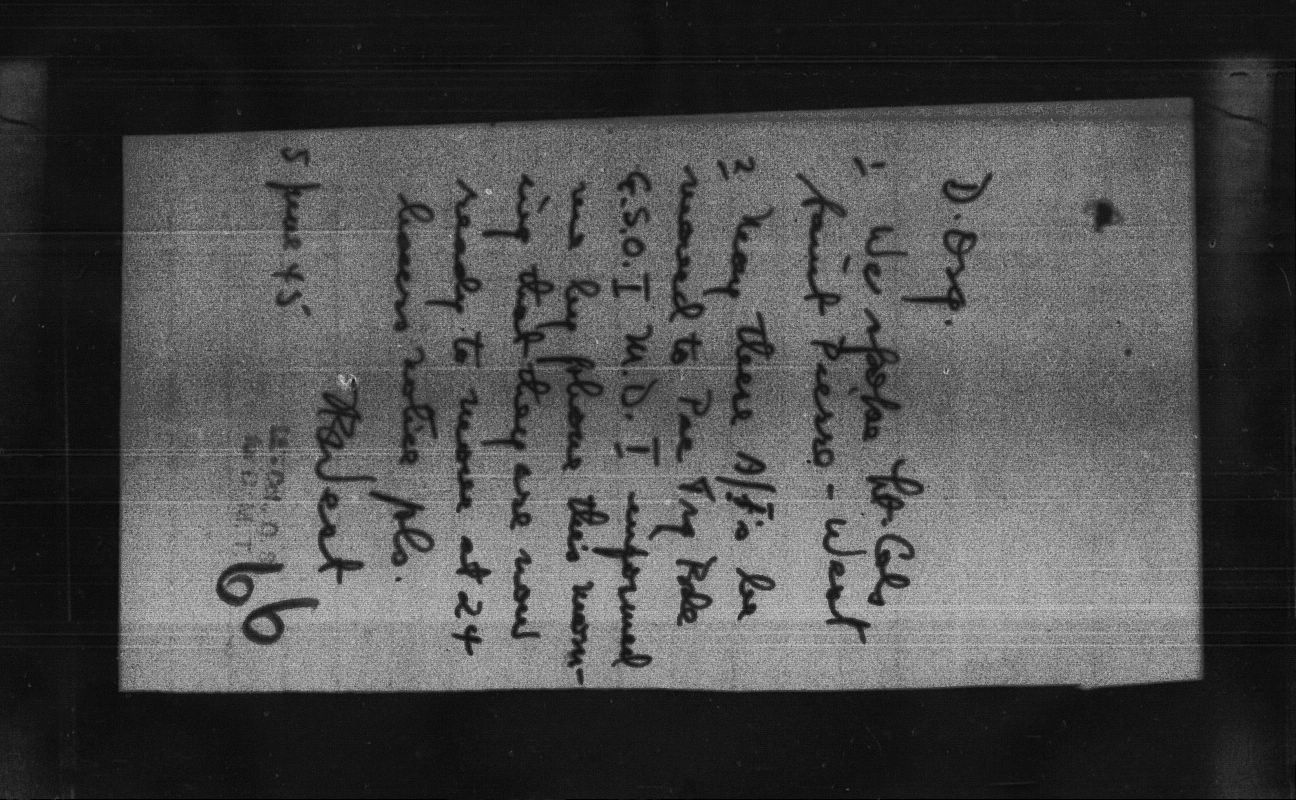 D. Org.
1. We spoke Lt. Cols
Saint Pierre - West
2. May these A/Ts be
moved to Pac Trg Bde
G.S.O. I M.D. I informed
me by phone this morn-
ing that they are now
ready to move at 24
hours notice pls.
West
5 June 45
66